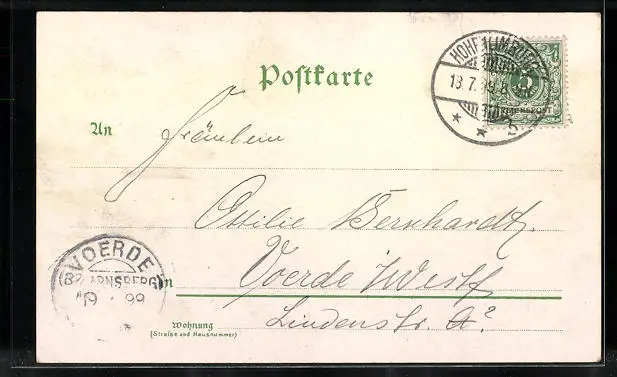 Postkarte
HOHENLIMBURG
13.7.99.8
2
5
REICHSPOST
An
Fräulein
Ottilie Bernhardt.
Voerde i/Westf.
in
Lindenstr.
Wohnung
(Straße und Hausnummer)
VOERDE
(BZ. ARNSBERG)
19 99